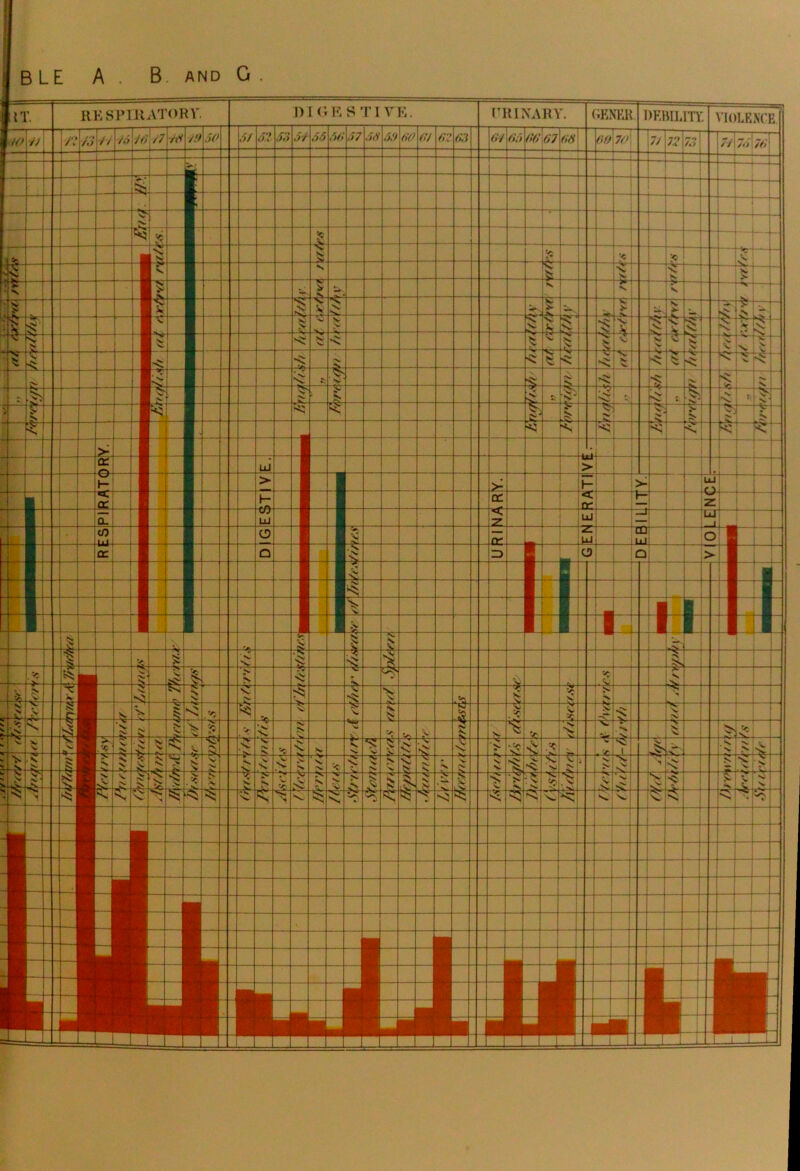 BLE A. B. AND C.
RT. RESPIRATORY. DIGESTIVE. URINARY. GENER. DEBILITY. VIOLENCE.
40 41 42 43 44 45 46 47 48 49 50 51 52 53 54 55 56 57 58 59 60 61 62 63 64 65 66 67 68 69 70 71 72 73 74 75 76
at extra rates
Foreign healthy
Eng.
English at extra rates.
English healthy
" at extra rates
Foreign healthy
English healthy
" at extra rates
Foreign healthy
English healthy
" at extra rates
English healthy
" at extra rates
Foreign healthy
English healthy
" at extra rates
Foreign healthy
RESPIRATORY.
DIGESTIVE.
URINARY.
GENERATIVE.
DEBILITY.
VIOLENCE.
Heart disease.
Angina Pectoris
Inflamn. of Larynx & Trachea
Pleurisy
Pneumonia
Congestion of Lungs
Asthma
Hydro & Pneumo Thorax
Disease of Lungs
Hæmoptysis
Gastritis Enteritis
Peritonitis
Ascites
Ulceration of Intestines
Hernia
Ileus
Stricture & other disease of Intestines
Stomach
Pancreas and Spleen
Hepatitis
Jaundice
Liver
Hæmatemesis
Ischuria
Brights disease
Diabetes
Cystitis
Kidney disease
Uterus & Ovaries
Child-birth
Old Age
Debility and Atrophy
Drowning
Accidents
Suicide